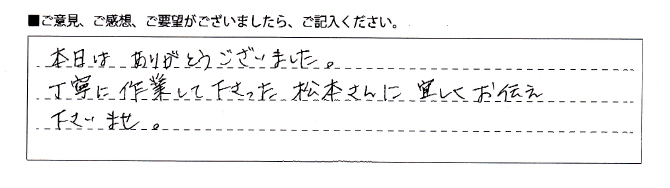 ■ご意見、ご感想、ご要望がございましたら、ご記入ください。
本日は ありがとうございました。
丁寧に 作業して 下さった 松本さんに 宜しく お伝え
下さいませ。